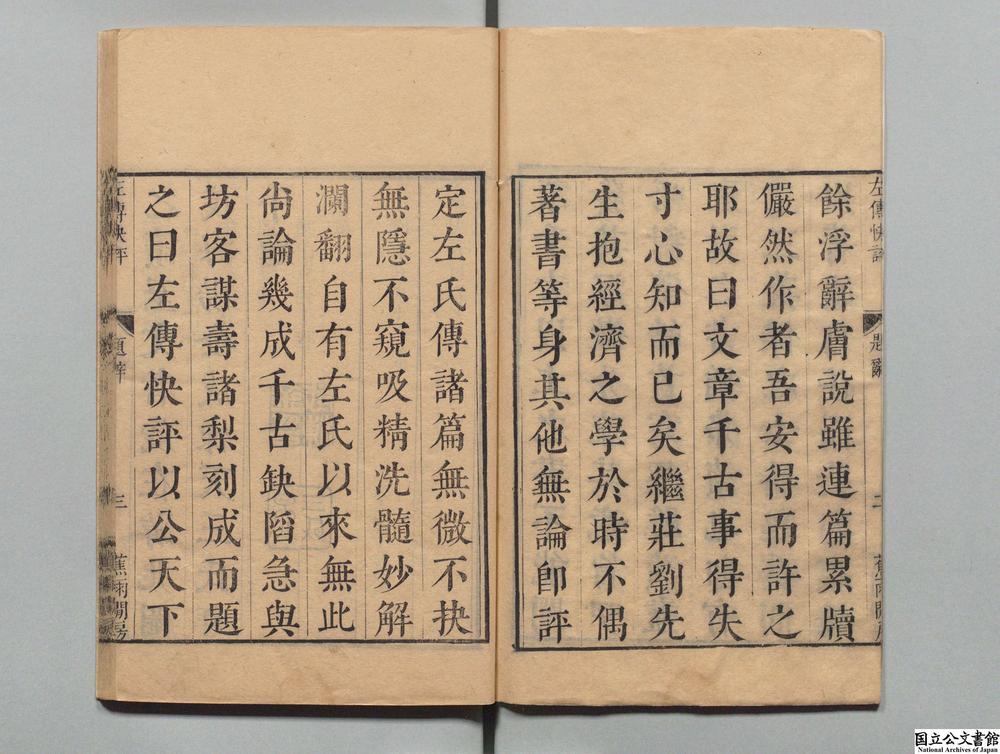 左傳快評 題辭 二 蕉雨閒房
餘浮辭膚說雖連篇累牘
儼然作者吾安得而許之
耶故曰文章千古事得失
寸心知而已矣繼莊劉先
生抱經濟之學於時不偶
著書等身其他無論卽評
定左氏傳諸篇無微不抉
無隱不窺吸精洗髓妙解
瀾翻自有左氏以來無此
尙論幾成千古缺陷急與
坊客謀壽諸梨刻成而題
之曰左傳快評以公天下
左傳快評 題辭 三 蕉雨閒房
国立公文書館
National Archives of Japan